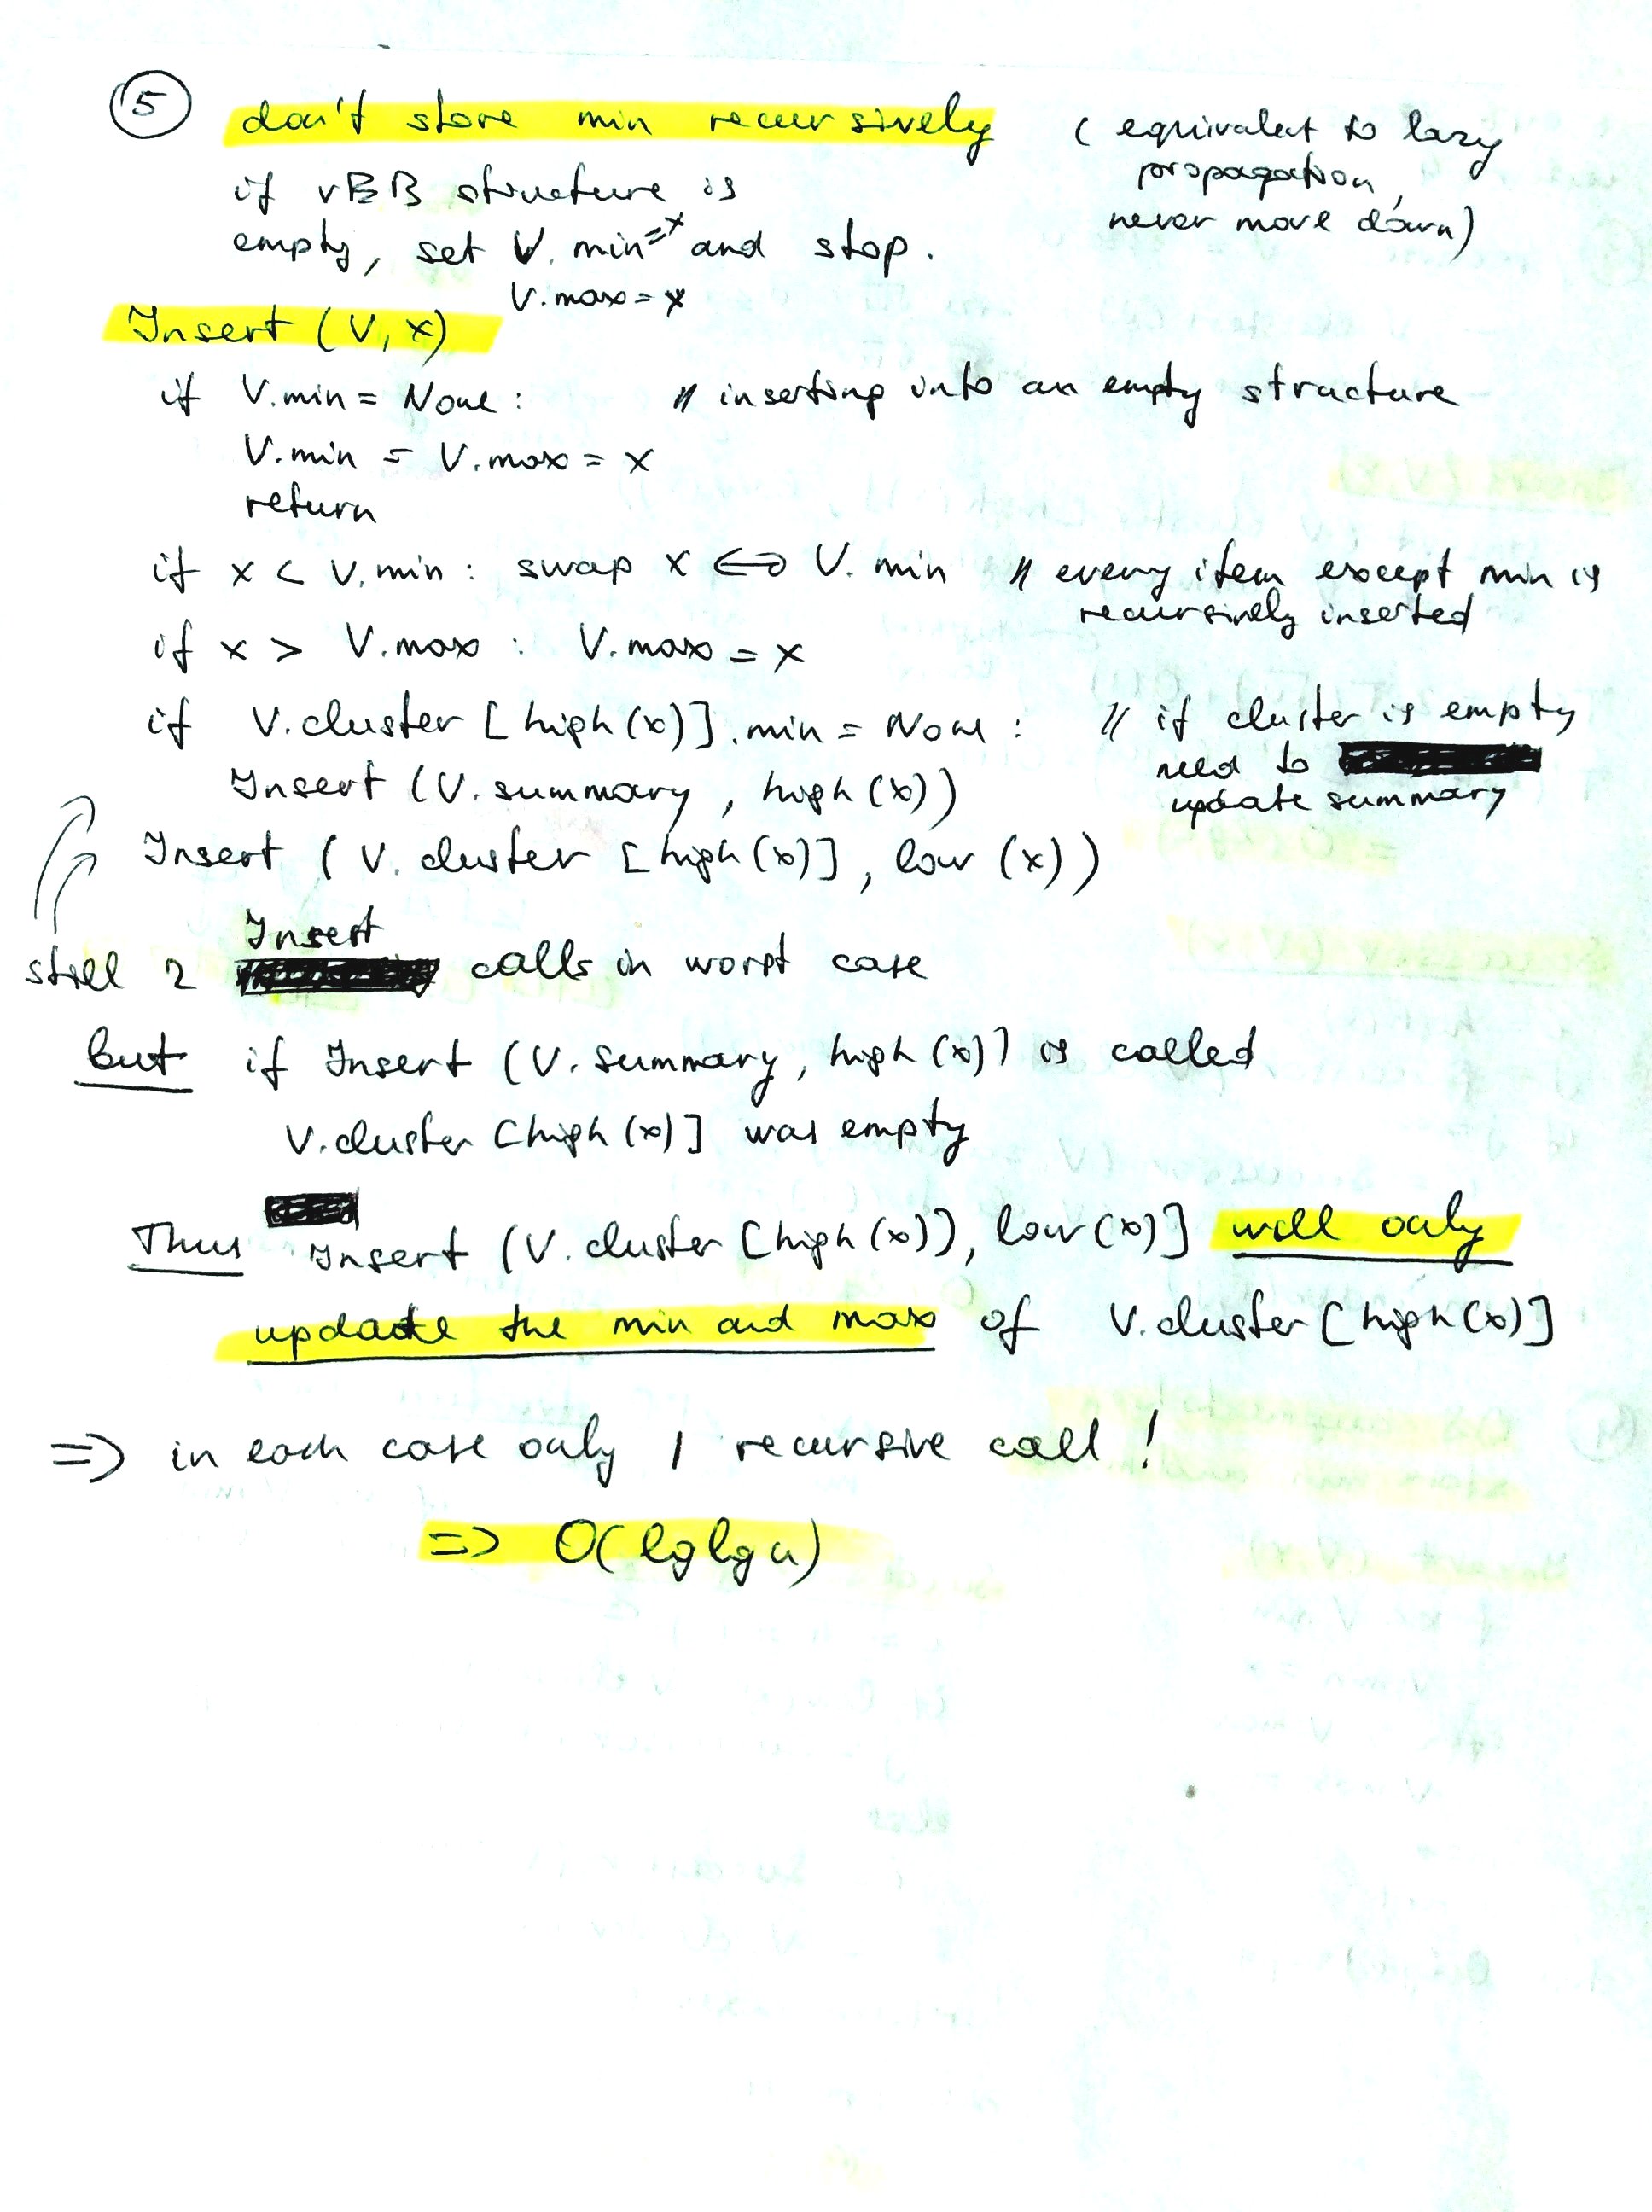 5 don't store min recursively
( equivalent to lazy
propagation,
never move down)
if vEB structure is
empty, set V.min=x and stop.
V.max=x
Insert (V, x)
if V.min = None: // inserting into an empty structure
V.min = V.max = x
return
if x < V.min: swap x ⇔ V.min // every item except min is
recursively inserted
if x > V.max : V.max = x
if V.cluster [high(x)].min = None : // if cluster is empty
need to
update summary
Insert (V.summary, high(x))
Insert (V.cluster [high(x)], low (x))
still 2 Insert calls in worst case
but if Insert (V.summary, high(x)) is called
V.cluster [high(x)] was empty
Thus Insert (V.cluster [high(x)), low(x)] will only
update the min and max of V.cluster [high(x)]
=> in each case only 1 recursive call!
=> O(lg lg u)